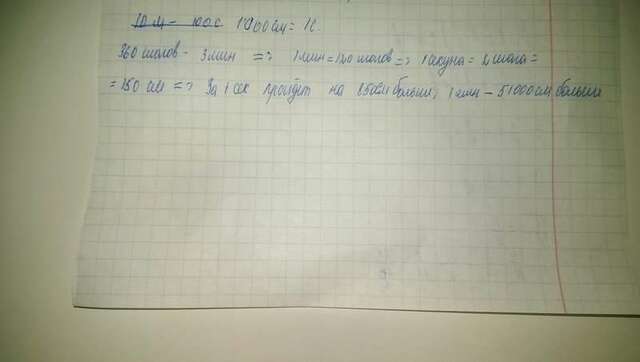 10 м - 100 с. 1000 см = 1 с.
360 шагов - 3 мин => 1 мин = 120 шагов => 1 секунда = 2 шага =
= 150 см => За 1 сек пройдет на 850 см больше, 1 мин - 51000 см больше